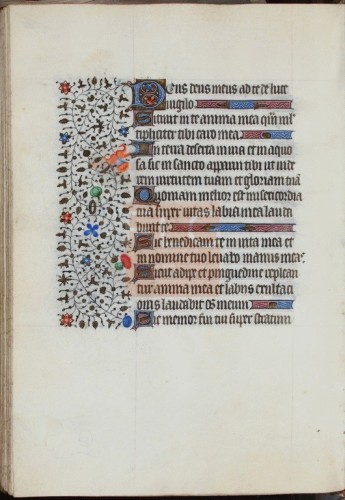 Deus deus meus ad te de luce
vigilo
Sitiuit in te anima mea qm̄ mul
tipliciter tibi caro mea
In terra deserta inuia et inaquo
sa sic in sancto apparui tibi ut uide
rem uirtutem tuam et gloriam tuā
Quoniam melior est misericordia
tua super uitas labia mea lauda
bunt te
Sic benedicam te in uita mea et
in nomine tuo leuabo manus meas
Sicut adipe et pinguedine replean
tur anima mea et labijs exultaci
onis laudabit os meum
Sic memor fui tui super stratum